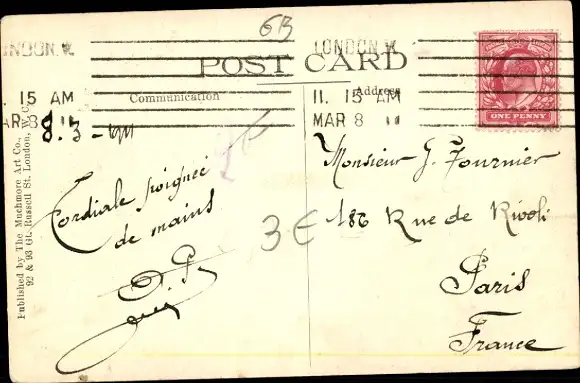 6B
LONDON. W.
LONDON. W.
POST CARD
Communication
Address
11. 15 AM
MAR 8 11
. 15 AM
AR 8 11
ONE PENNY
8.3-1911
Cordiale poignée
de mains
3 €
Monsieur J. Fournier
186 Rue de Rivoli
Paris
France
Published by The Muchmore Art Co.,
92 & 93 Gt. Russell St. London, W.C.